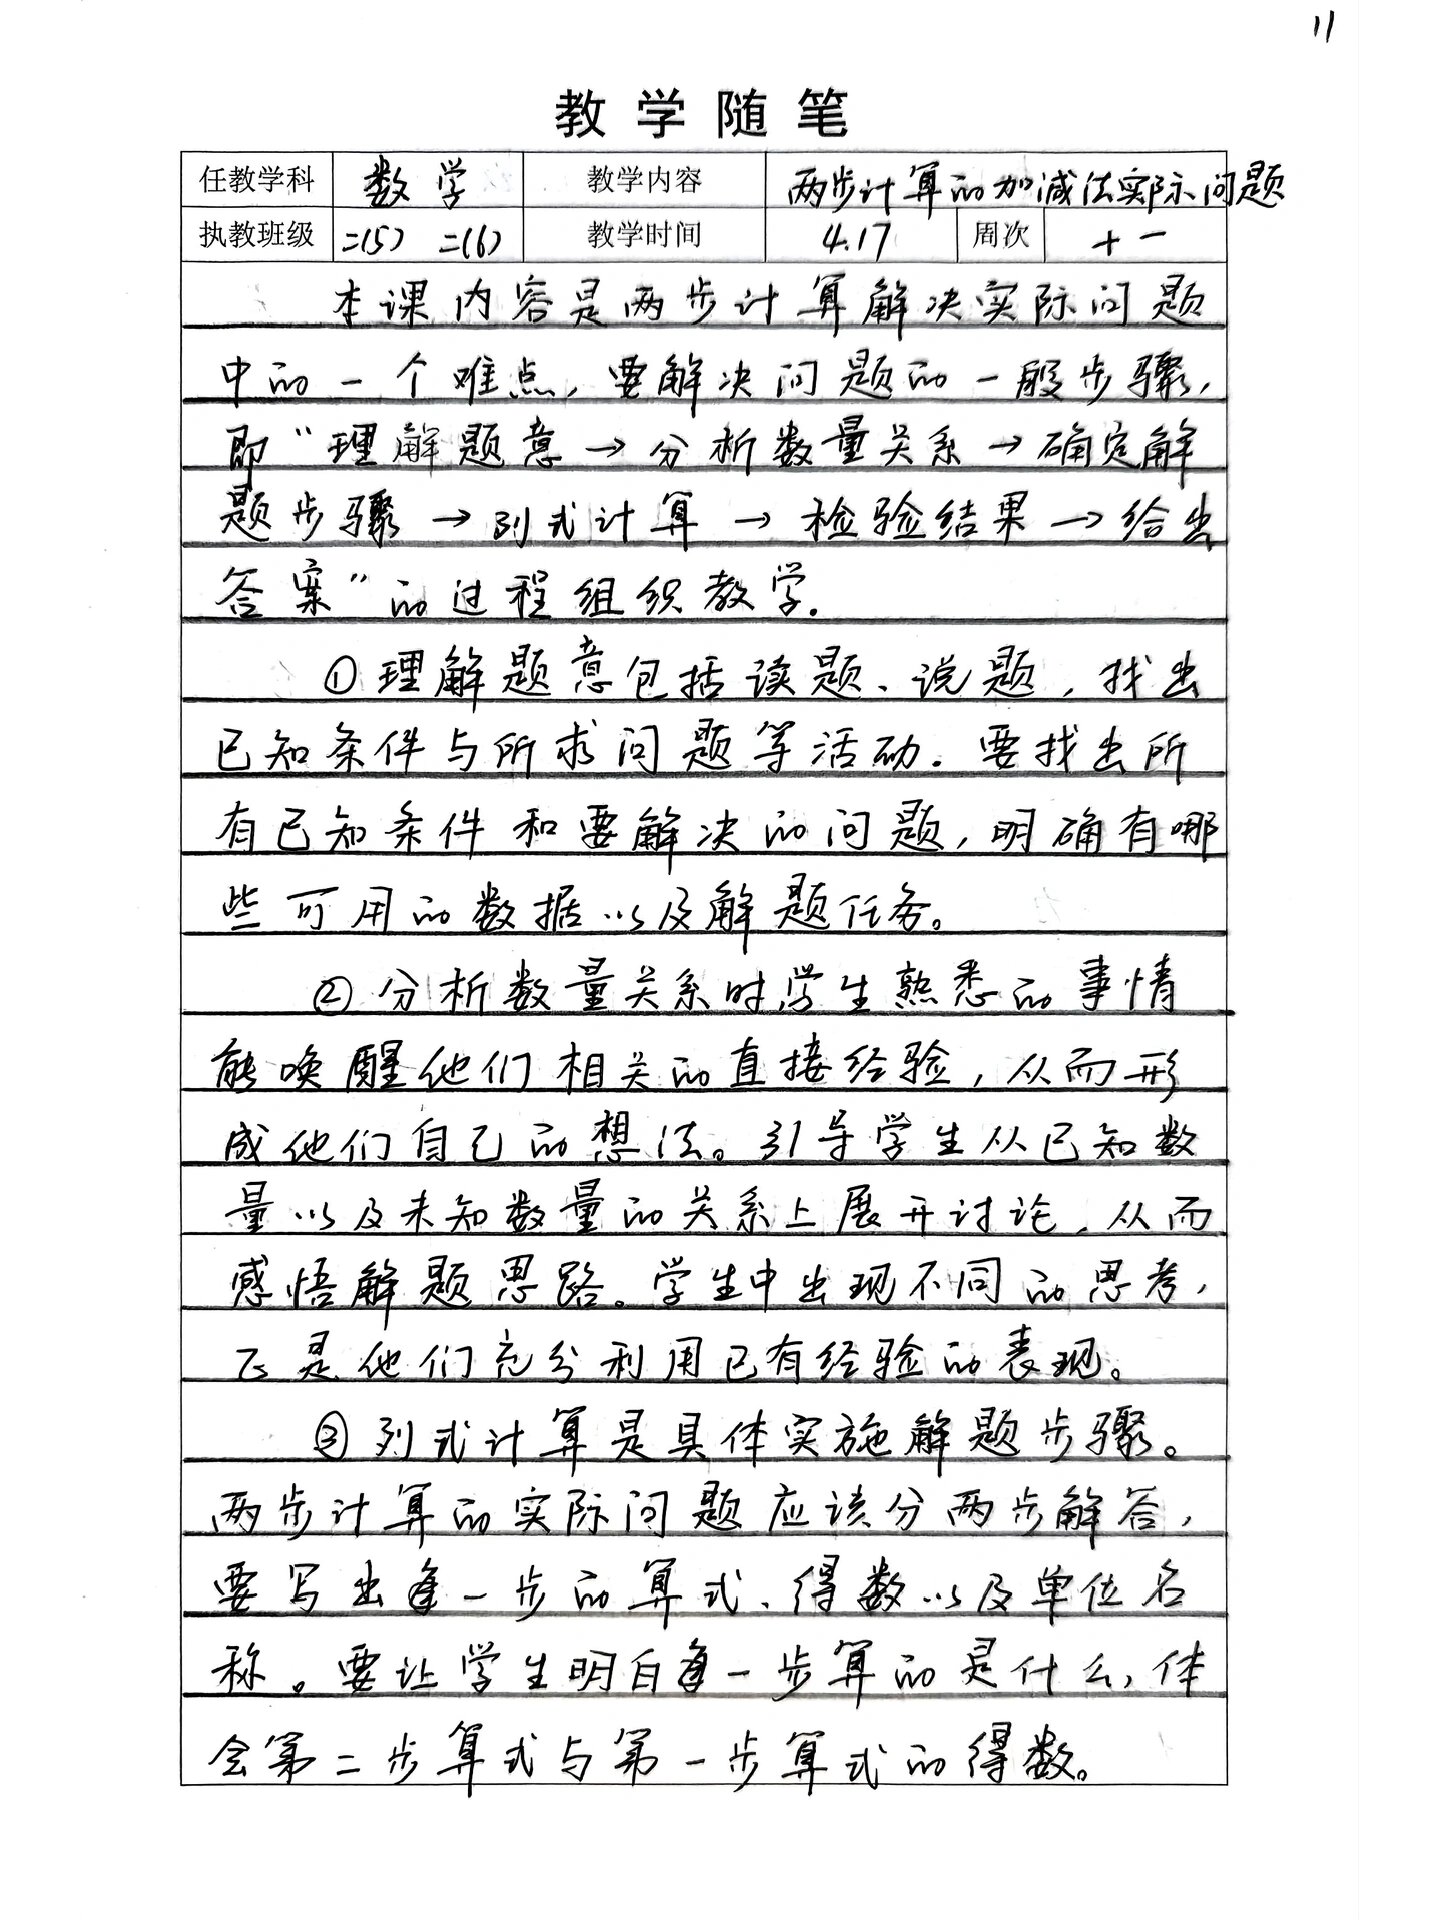 11
教学随笔
任教学科 数学 教学内容 两步计算的加减法实际问题
执教班级 二(5) 二(6) 教学时间 4.17 周次 十一
本课内容是两步计算解决实际问题
中的一个难点，要解决问题的一般步骤，
即“理解题意→分析数量关系→确定解
题步骤→列式计算→检验结果→给出
答案”的过程组织教学.
①理解题意包括读题、说题，找出
已知条件与所求问题等活动.要找出所
有已知条件和要解决的问题,明确有哪
些可用的数据以及解题任务。
②分析数量关系时,学生熟悉的事情
能唤醒他们相关的直接经验，从而形
成他们自己的想法。引导学生从已知数
量以及未知数量的关系上展开讨论，从而
感悟解题思路。学生中出现不同的思考，
正是他们充分利用已有经验的表现。
③列式计算是具体实施解题步骤。
两步计算的实际问题应该分两步解答，
要写出每一步的算式、得数以及单位名
称。要让学生明白每一步算的是什么，体
会第二步算式与第一步算式的得数。